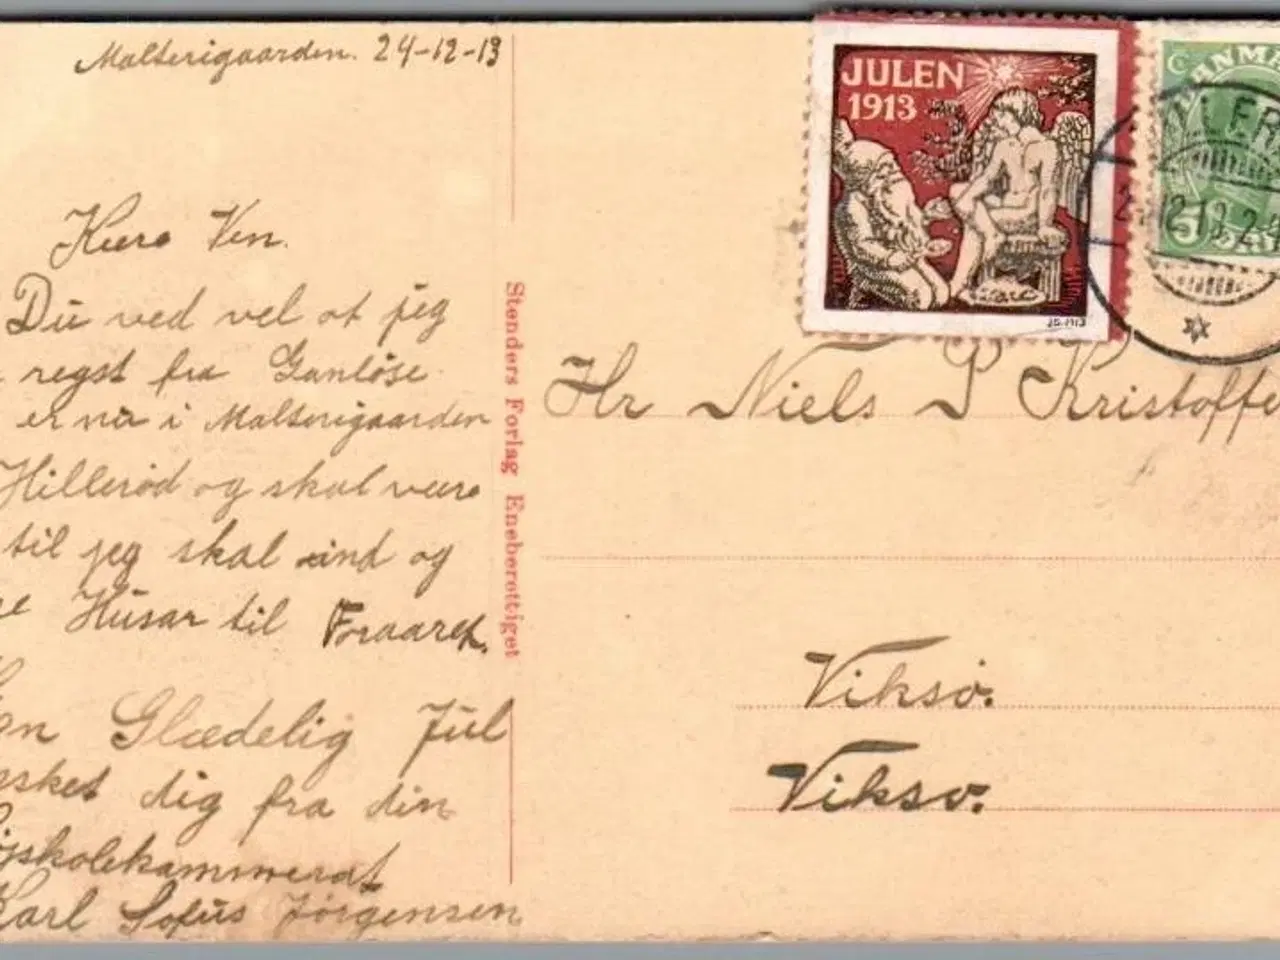 Malterigaarden. 24-12-13
Kære Ven.
Du ved vel at jeg
regst fra Ganløse.
er nu i Malterigaarden
Hillerød og skal være
til jeg skal ind og
Husar til Foraaret.
Glædelig Jul
dig fra din
Højskolekammerat
Karl Sofus Jørgensen
Stenders Forlag Eneberettiget
JULEN
1913
Hr Niels P Kristoffe
Viksø.
Viksø.